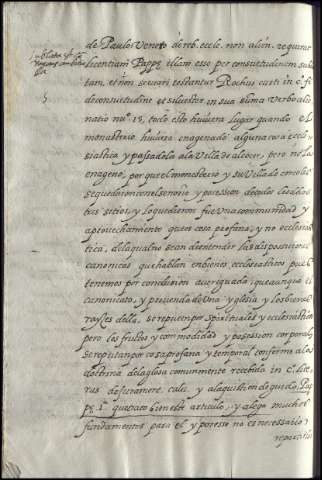 de Paulo Veneto de reb. eccle. non alien.
licentiam Pappę illam esse per consuetudinem
tam, et non servari testantur Rochus curti in c. fi
de consuetudine et silvester en su a suma verbo alie
natio nu° 13, todo esto huviera lugar quando el
monasterio huviera enagenado alguna cosa eccle
siastica y passadola a la Villa de alcocer, pero no la
enageno, por que el monasterio y su Villa de
se quedaron con el señorio y posession de todos los
tros sitios, y lo que dieron fue una communidad y
aprovechamiento que es cosa profana, y no ecclesias
tica, de la qual no se an de entender las dispositiones
canonicas que hablan en bienes ecclesiasticos pues
tenemos por conclusion averiguada que aunque el
canonicato, y prevenda de una yglesia y los bienes
rayzes della, se reputen por spirituales y ecclesiasticos
pero los fructos y commodidad y posession corporal
se reputan por cosa profana y temporal conforme a la
doctrina de la glosa comunmente recebida in c.
ras de iuramen. calu. y a la question de guido, Pap
pę. que toca bien este articulo, y alega muchos
fundamentos para el y por esso no es necessario